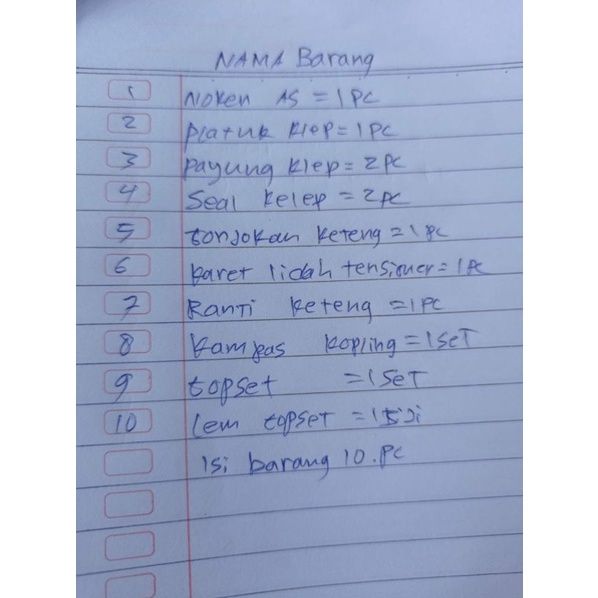 NAMA Barang
1 Noken AS = 1 PC
2 platuk klep = 1 PC
3 payung klep = 2 PC
4 Seal kelep = 2 PC
5 tonjokan keteng = 1 PC
6 karet lidah tensioner = 1 PC
7 Ranti keteng = 1 PC
8 kampas kopling = 1 SeT
9 topset = 1 SeT
10 lem topset = 1
isi barang 10. PC